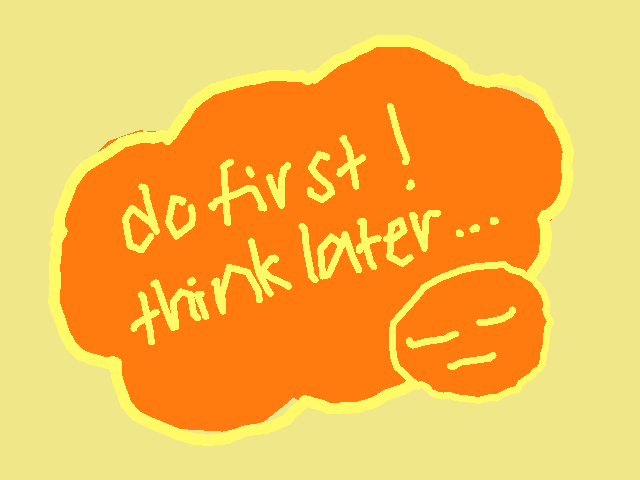 do first!
think later...